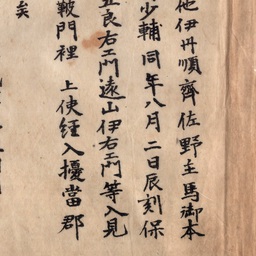 他伊丹順齊佐野主馬御本
少輔同年八月二日辰刻保
五良右エ門遠山伊右エ門等入見
鞁門裡 上使經入擾當郡
矣